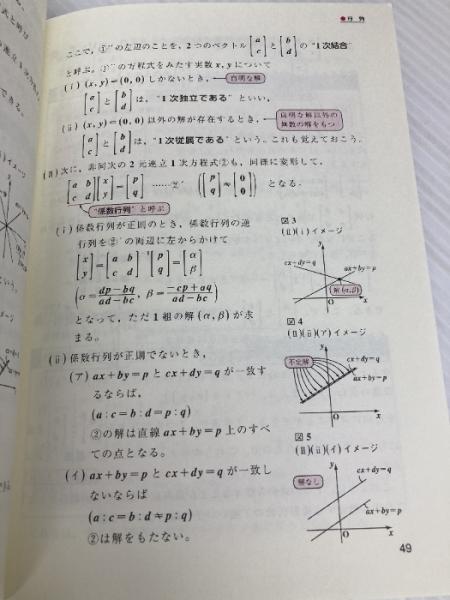 ●行列
ここで，①''の左辺のことを，2つのベクトル[a c]と[b d]の“1次結合”
と呼ぶ。①''の方程式をみたす実数x, yについて
(ⅰ) (x, y)=(0, 0)しかないとき， 自明な解
[a c]と[b d]は，“1次独立である”といい，
(ⅱ) (x, y)=(0, 0)以外の解が存在するとき， 自明な解以外の
無数の解をもつ
[a c]と[b d]は，“1次従属である”という。これも覚えておこう。
(Ⅱ)次に，非同次の2元連立1次方程式②も，同様に変形して，
[a b c d][x y]=[p q] ……②' ([p q]≠[0 0]) となる。
“係数行列”と呼ぶ
(ⅰ)係数行列が正則のとき，係数行列の逆
行列を②'の両辺に左からかけて
[x y]=[a b c d]⁻¹[p q]=[α β]
(α=dp−bq/ad−bc, β=−cp+aq/ad−bc)
となって，ただ1組の解(α, β)が求
まる。
(ⅱ)係数行列が正則でないとき，
(ア) ax+by=pとcx+dy=qが一致す
るならば，
(a:c=b:d=p:q)
②の解は直線ax+by=p上のすべ
ての点となる。
(イ) ax+by=pとcx+dy=qが一致し
ないならば
(a:c=b:d≠p:q)
②は解をもたない。
図3
(Ⅱ)(ⅰ)イメージ
y
cx+dy=q
ax+by=p
解(α, β)
O
x
図4
(Ⅱ)(ⅱ)(ア)イメージ
y
不定解
cx+dy=q
ax+by=p
O
x
図5
(Ⅱ)(ⅱ)(イ)イメージ
y
cx+dy=q
解なし
ax+by=p
O
x
49